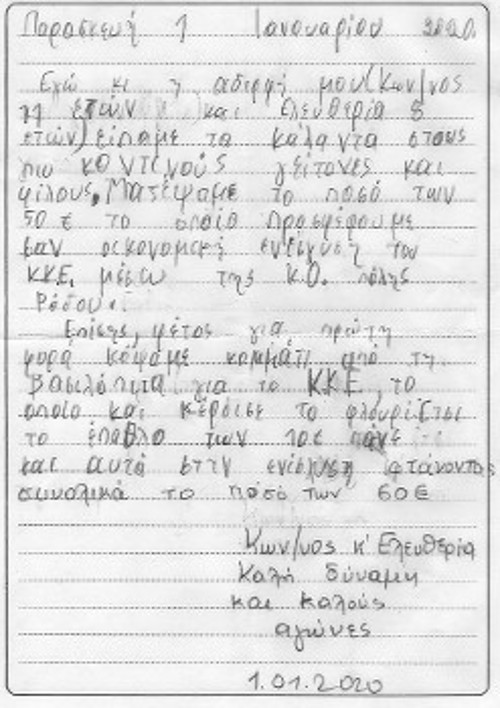 Παρασκευή 1 Ιανουαρίου 2020.
Εγώ κι η αδερφή μου (Κων/νος
11 ετών και Ελευθερία 8
ετών) είπαμε τα κάλαντα στους
πιο κοντινούς γείτονες και
φίλους, Μαζέψαμε το ποσό των
50 € το οποίο προσφέρουμε
σαν οικονομική ενίσχυση του
ΚΚΕ, μέσω της Κ.Ο. πόλης
Ρόδου.
Επίσης, φέτος για πρώτη
φορά κόψαμε κομμάτι από τη
βασιλόπιτα για το ΚΚΕ, το
οποίο και κέρδισε το φλουρί. Έτσι
το έπαθλο των 10€ πάνε
και αυτά στην ενίσχυση φτάνοντας
συνολικά το ποσό των 60€
Κων/νος κ' Ελευθερία
Καλή δύναμη
και καλούς
αγώνες
1.01.2020